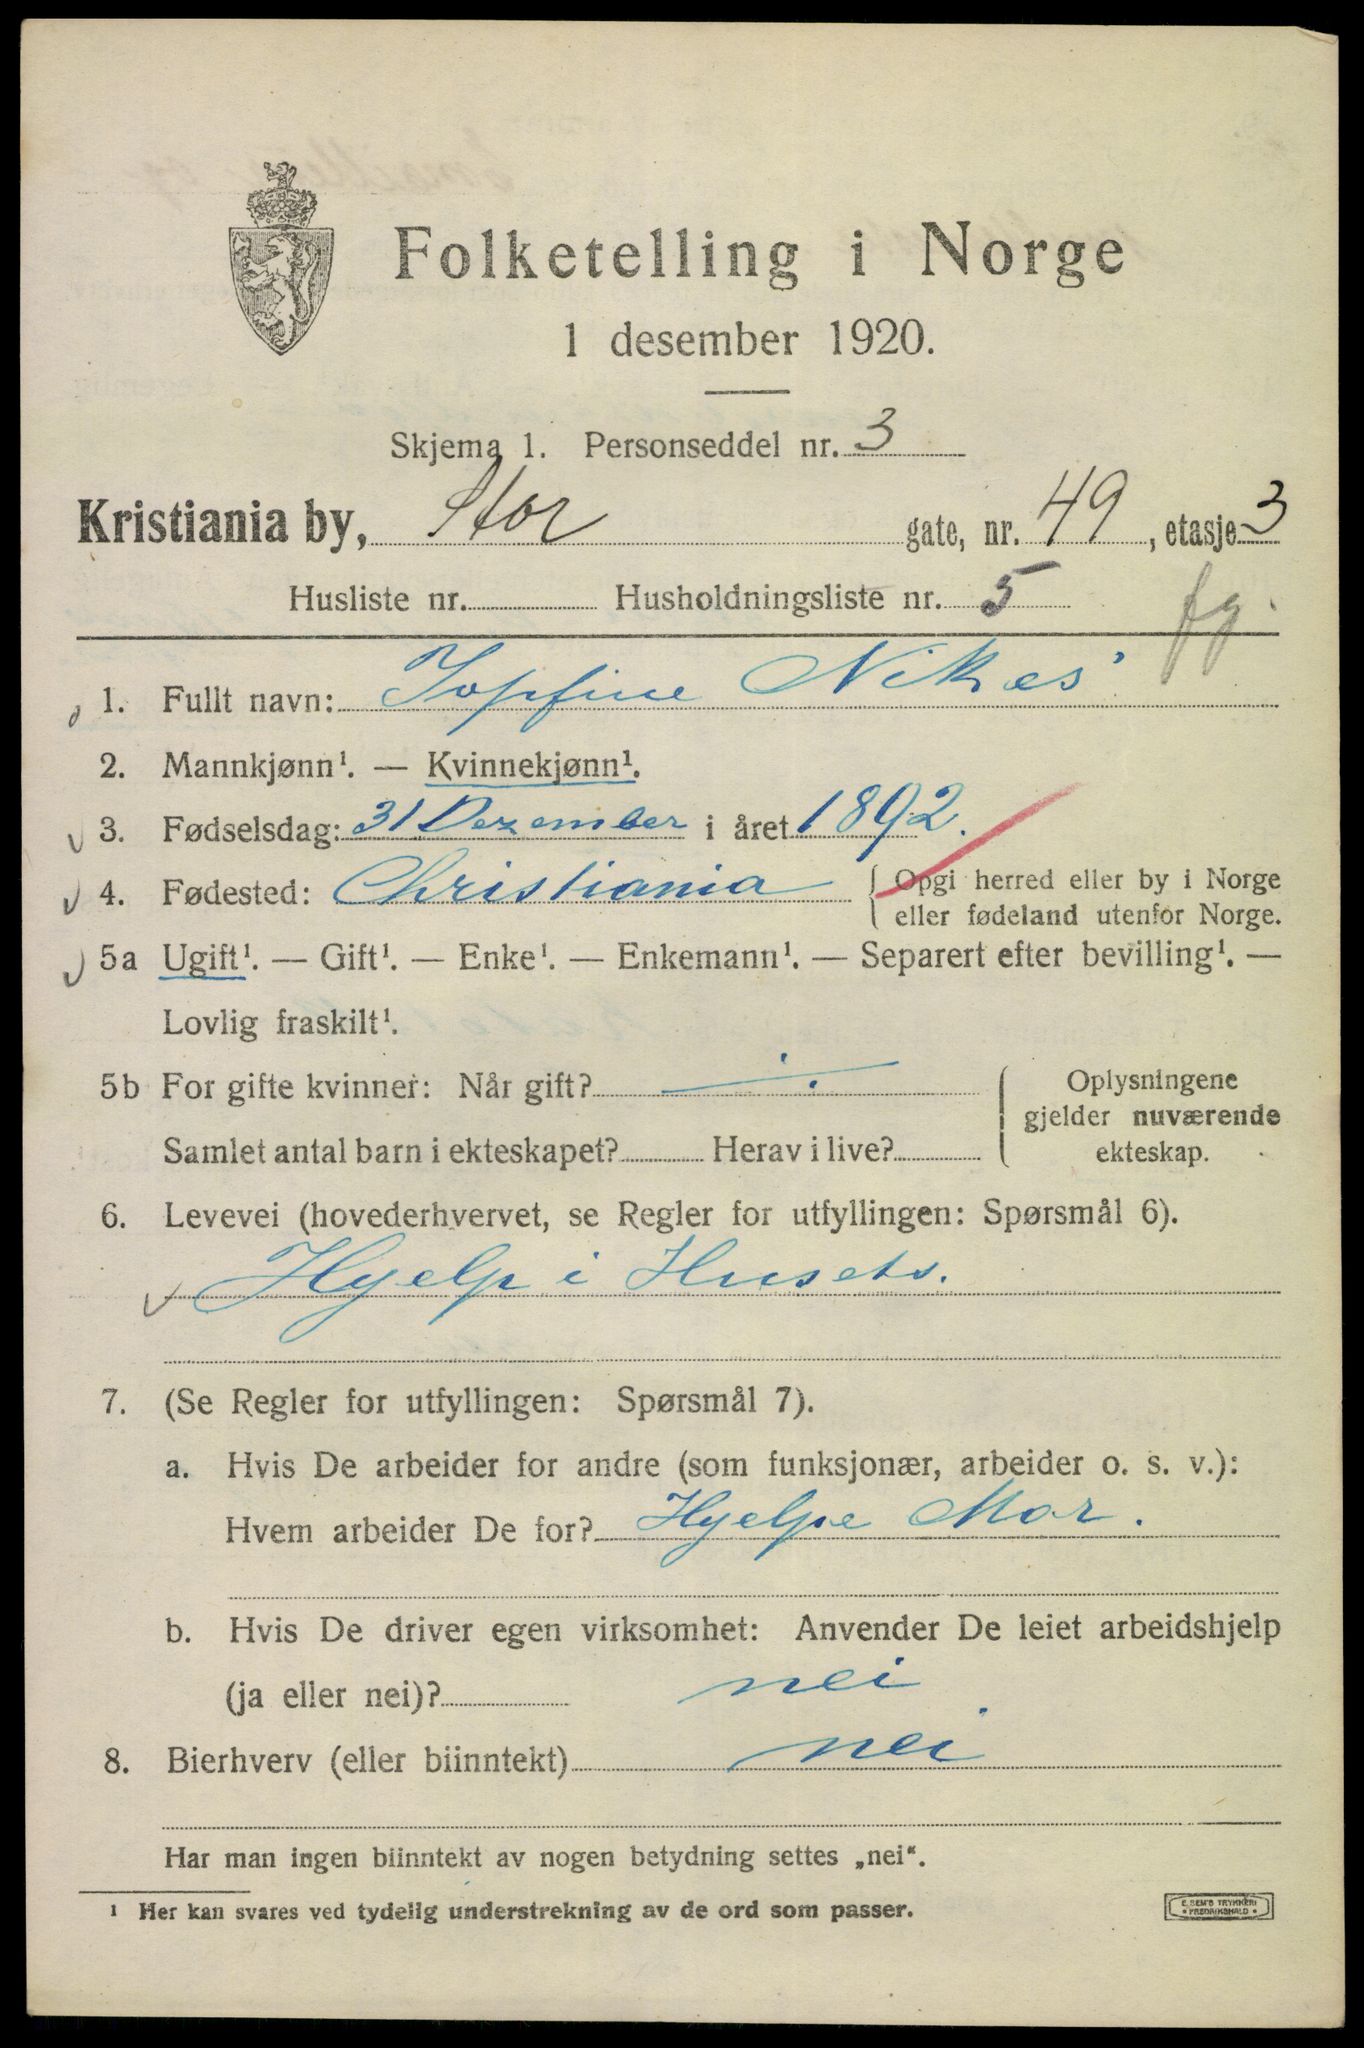 Folketelling i Norge
1 desember 1920.
Skjema 1. Personseddel nr. 3
Kristiania by, Stor gate, nr. 49, etasje 3
Husliste nr. Husholdningsliste nr. 5
fg.
1. Fullt navn:
2. Mannkjønn¹. — Kvinnekjønn¹.
3. Fødselsdag: 31 Dezember i året 1892.
4. Fødested: Christiania { Opgi herred eller by i Norge
eller fødeland utenfor Norge.
5a Ugift¹. — Gift¹. — Enke¹. — Enkemann¹. — Separert efter bevilling¹. —
Lovlig fraskilt¹.
5b For gifte kvinner: Når gift? ÷ Oplysningene
gjelder nuværende
Samlet antal barn i ekteskapet? Herav i live? ekteskap.
6. Levevei (hovederhvervet, se Regler for utfyllingen: Spørsmål 6).
Hjelp i Husets.
7. (Se Regler for utfyllingen: Spørsmål 7).
a. Hvis De arbeider for andre (som funksjonær, arbeider o. s. v.):
Hvem arbeider De for? Hjelpe Mor.
b. Hvis De driver egen virksomhet: Anvender De leiet arbeidshjelp
(ja eller nei)? nei
8. Bierhverv (eller biinntekt) nei
Har man ingen biinntekt av nogen betydning settes „nei“.
¹ Her kan svares ved tydelig understrekning av de ord som passer.
E. SEM'S TRYKKERI
• FREDRIKSHALD •